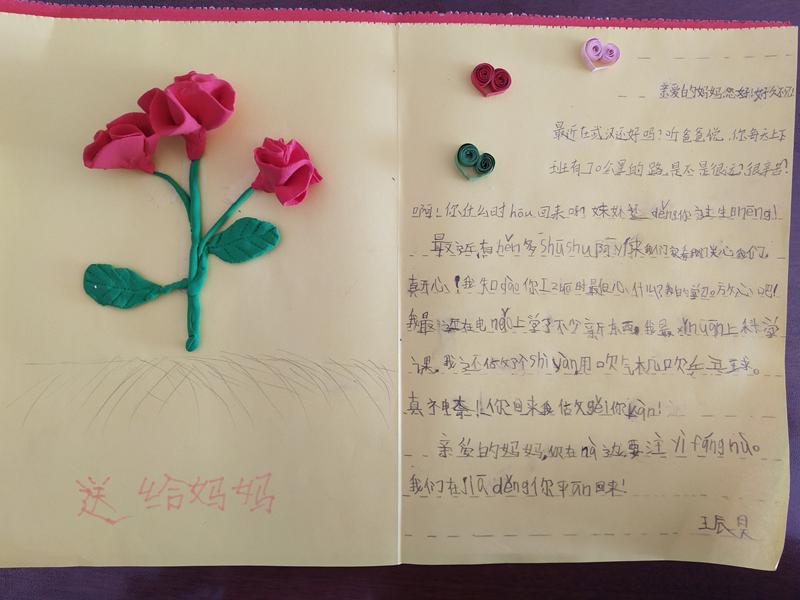 送给妈妈
亲爱的妈妈,您好!好久不见
最近在武汉还好吗?听爸爸说,你每天上下
班有70公里的路,是不是很远?很辛苦?
啊!你什么时hòu回来啊 妹妹 děng你过生日nēng!
最近,有hěn多shūshu阿yí来我们家看我们关心我们,
真开心!我知dào你工作时最担心什么?我的学习放心吧!
我最近在电nǎo上学了不少新东西,我最xǐhuān上科学
课。我还做了个shíyàn用吹气机吹乒乓球。
真神奇!你回来我估做gěi你kàn!
亲爱的妈妈,你在nà边要注yì fáng hù。
我们在jiā děng你平ān回来!
王辰昊